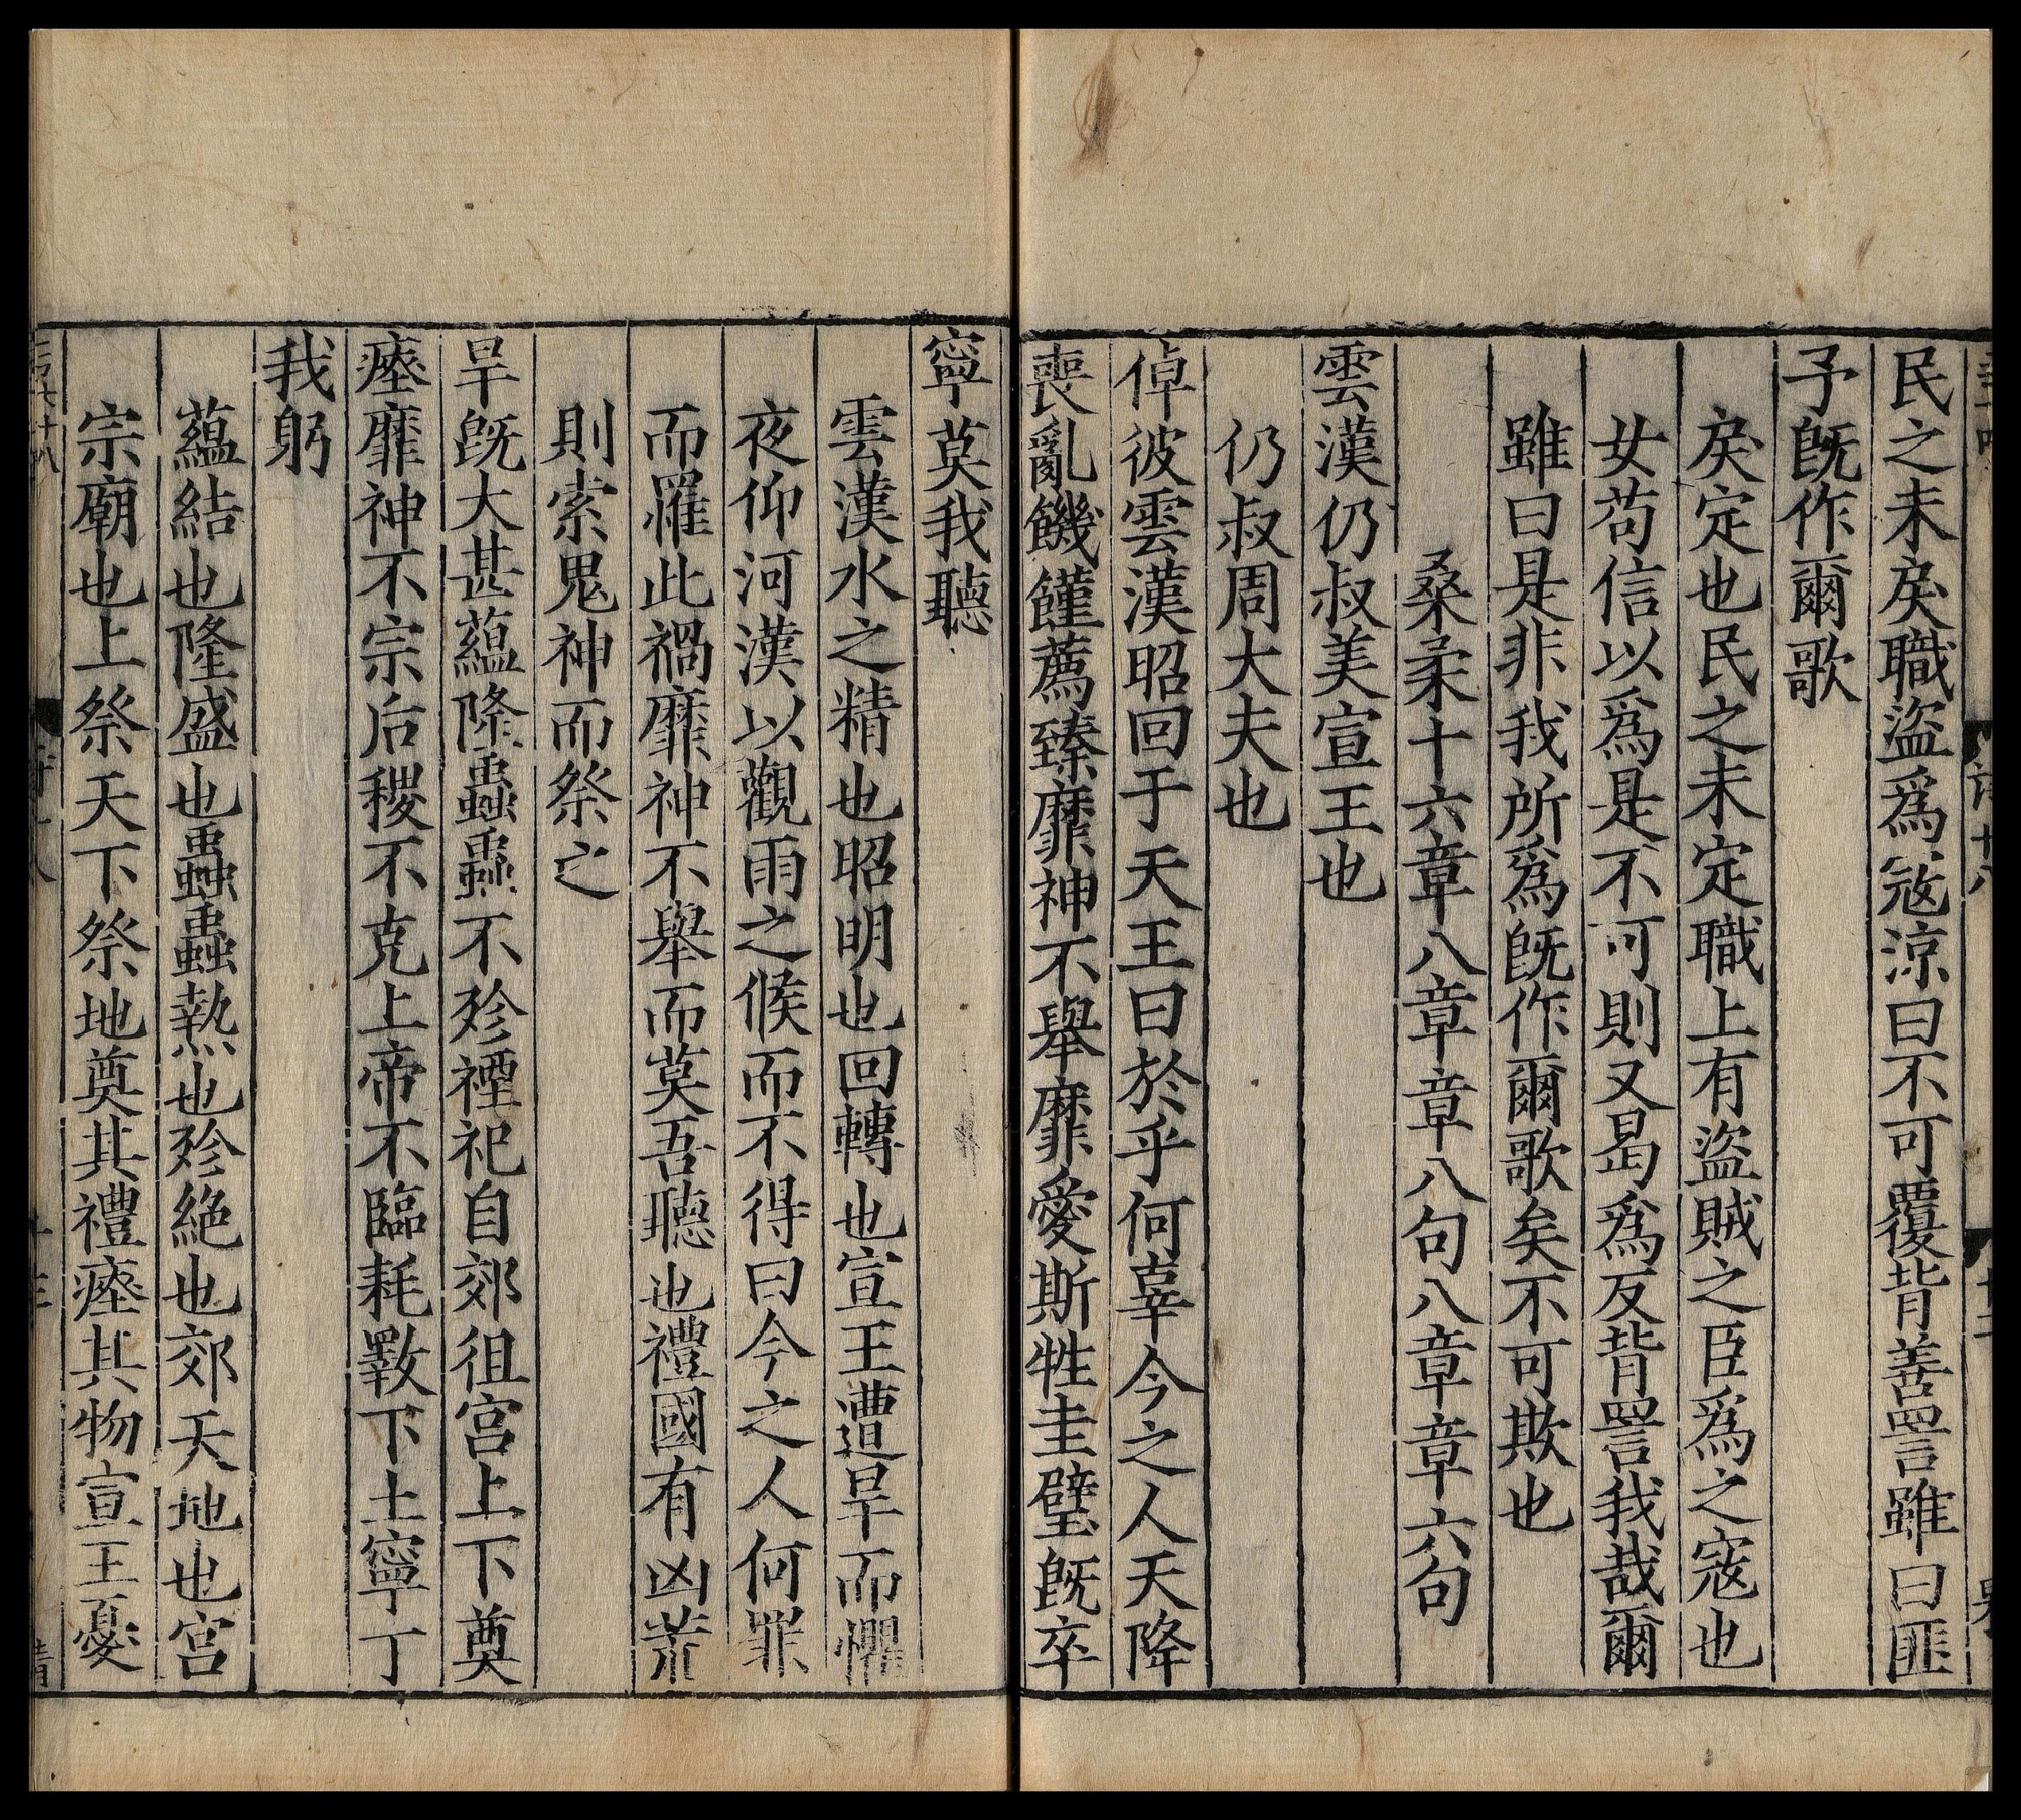 民之未戾職盜爲寇涼曰不可覆背善詈雖曰匪
予旣作爾歌
戾定也民之未定職上有盜賊之臣爲之寇也
女苟信以爲是不可則又曷爲反背詈我哉爾
雖曰是非我所爲旣作爾歌矣不可欺也
桑柔十六章八章章八句八章章六句
雲漢仍叔美宣王也
仍叔周大夫也
倬彼雲漢昭回于天王曰於乎何辜今之人天降
喪亂饑饉薦臻靡神不舉靡愛斯牲圭璧旣卒
寧莫我聽
雲漢水之精也昭明也回轉也宣王遭旱而懼
夜仰河漢以觀雨之候而不得曰今之人何罪
而罹此禍靡神不舉而莫吾聽也禮國有凶荒
則索鬼神而祭之
旱旣大甚蘊隆蟲蟲不殄禋祀自郊徂宮上下奠
瘞靡神不宗后稷不克上帝不臨耗斁下土寧丁
我躬
蘊結也隆盛也蟲蟲熱也殄絶也郊天地也宮
宗廟也上祭天下祭地奠其禮瘞其物宣王憂